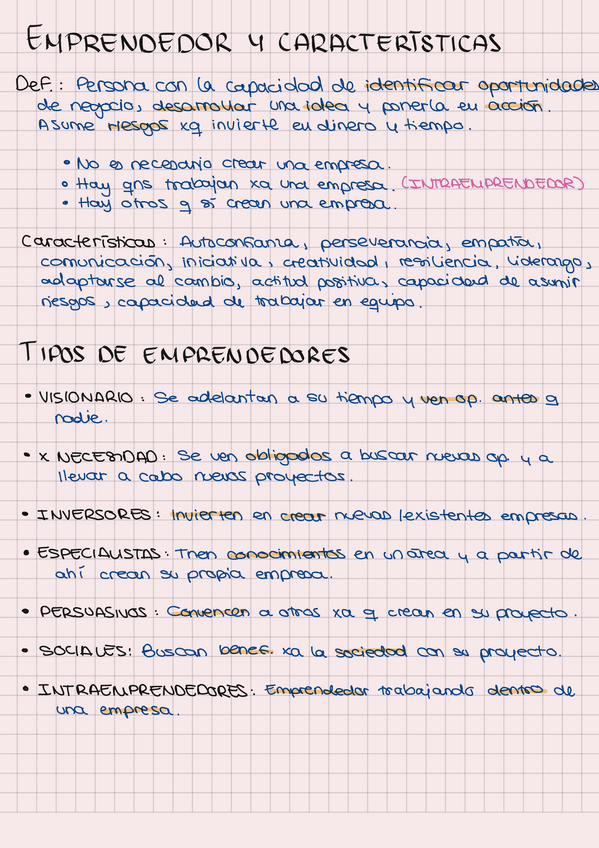 EMPRENDEDOR Y CARACTERÍSTICAS
Def.: Persona con la capacidad de identificar oportunidades
de negocio, desarrollar una idea y ponerla en acción.
Asume riesgos xq invierte en dinero y tiempo.
• No es necesario crear una empresa.
• Hay qns trabajan xa una empresa. (INTRAEMPRENDEDOR)
• Hay otros q sí crean una empresa.
Características: Autoconfianza, perseverancia, empatía,
comunicación, iniciativa, creatividad, resiliencia, liderazgo,
adaptarse al cambio, actitud positiva, capacidad de asumir
riesgos, capacidad de trabajar en equipo.
TIPOS DE EMPRENDEDORES
• VISIONARIO: Se adelantan a su tiempo y ven op. antes q
nadie.
• X NECESIDAD: Se ven obligados a buscar nuevas op. y a
llevar a cabo nuevos proyectos.
• INVERSORES: Invierten en crear nuevas/existentes empresas.
• ESPECIALISTAS: Tnen conocimientos en un área y a partir de
ahí crean su propia empresa.
• PERSUASIVOS: Convencen a otros xa q crean en su proyecto.
• SOCIALES: Buscan benef. xa la sociedad con su proyecto.
• INTRAEMPRENDEDORES: Emprendedor trabajando dentro de
una empresa.